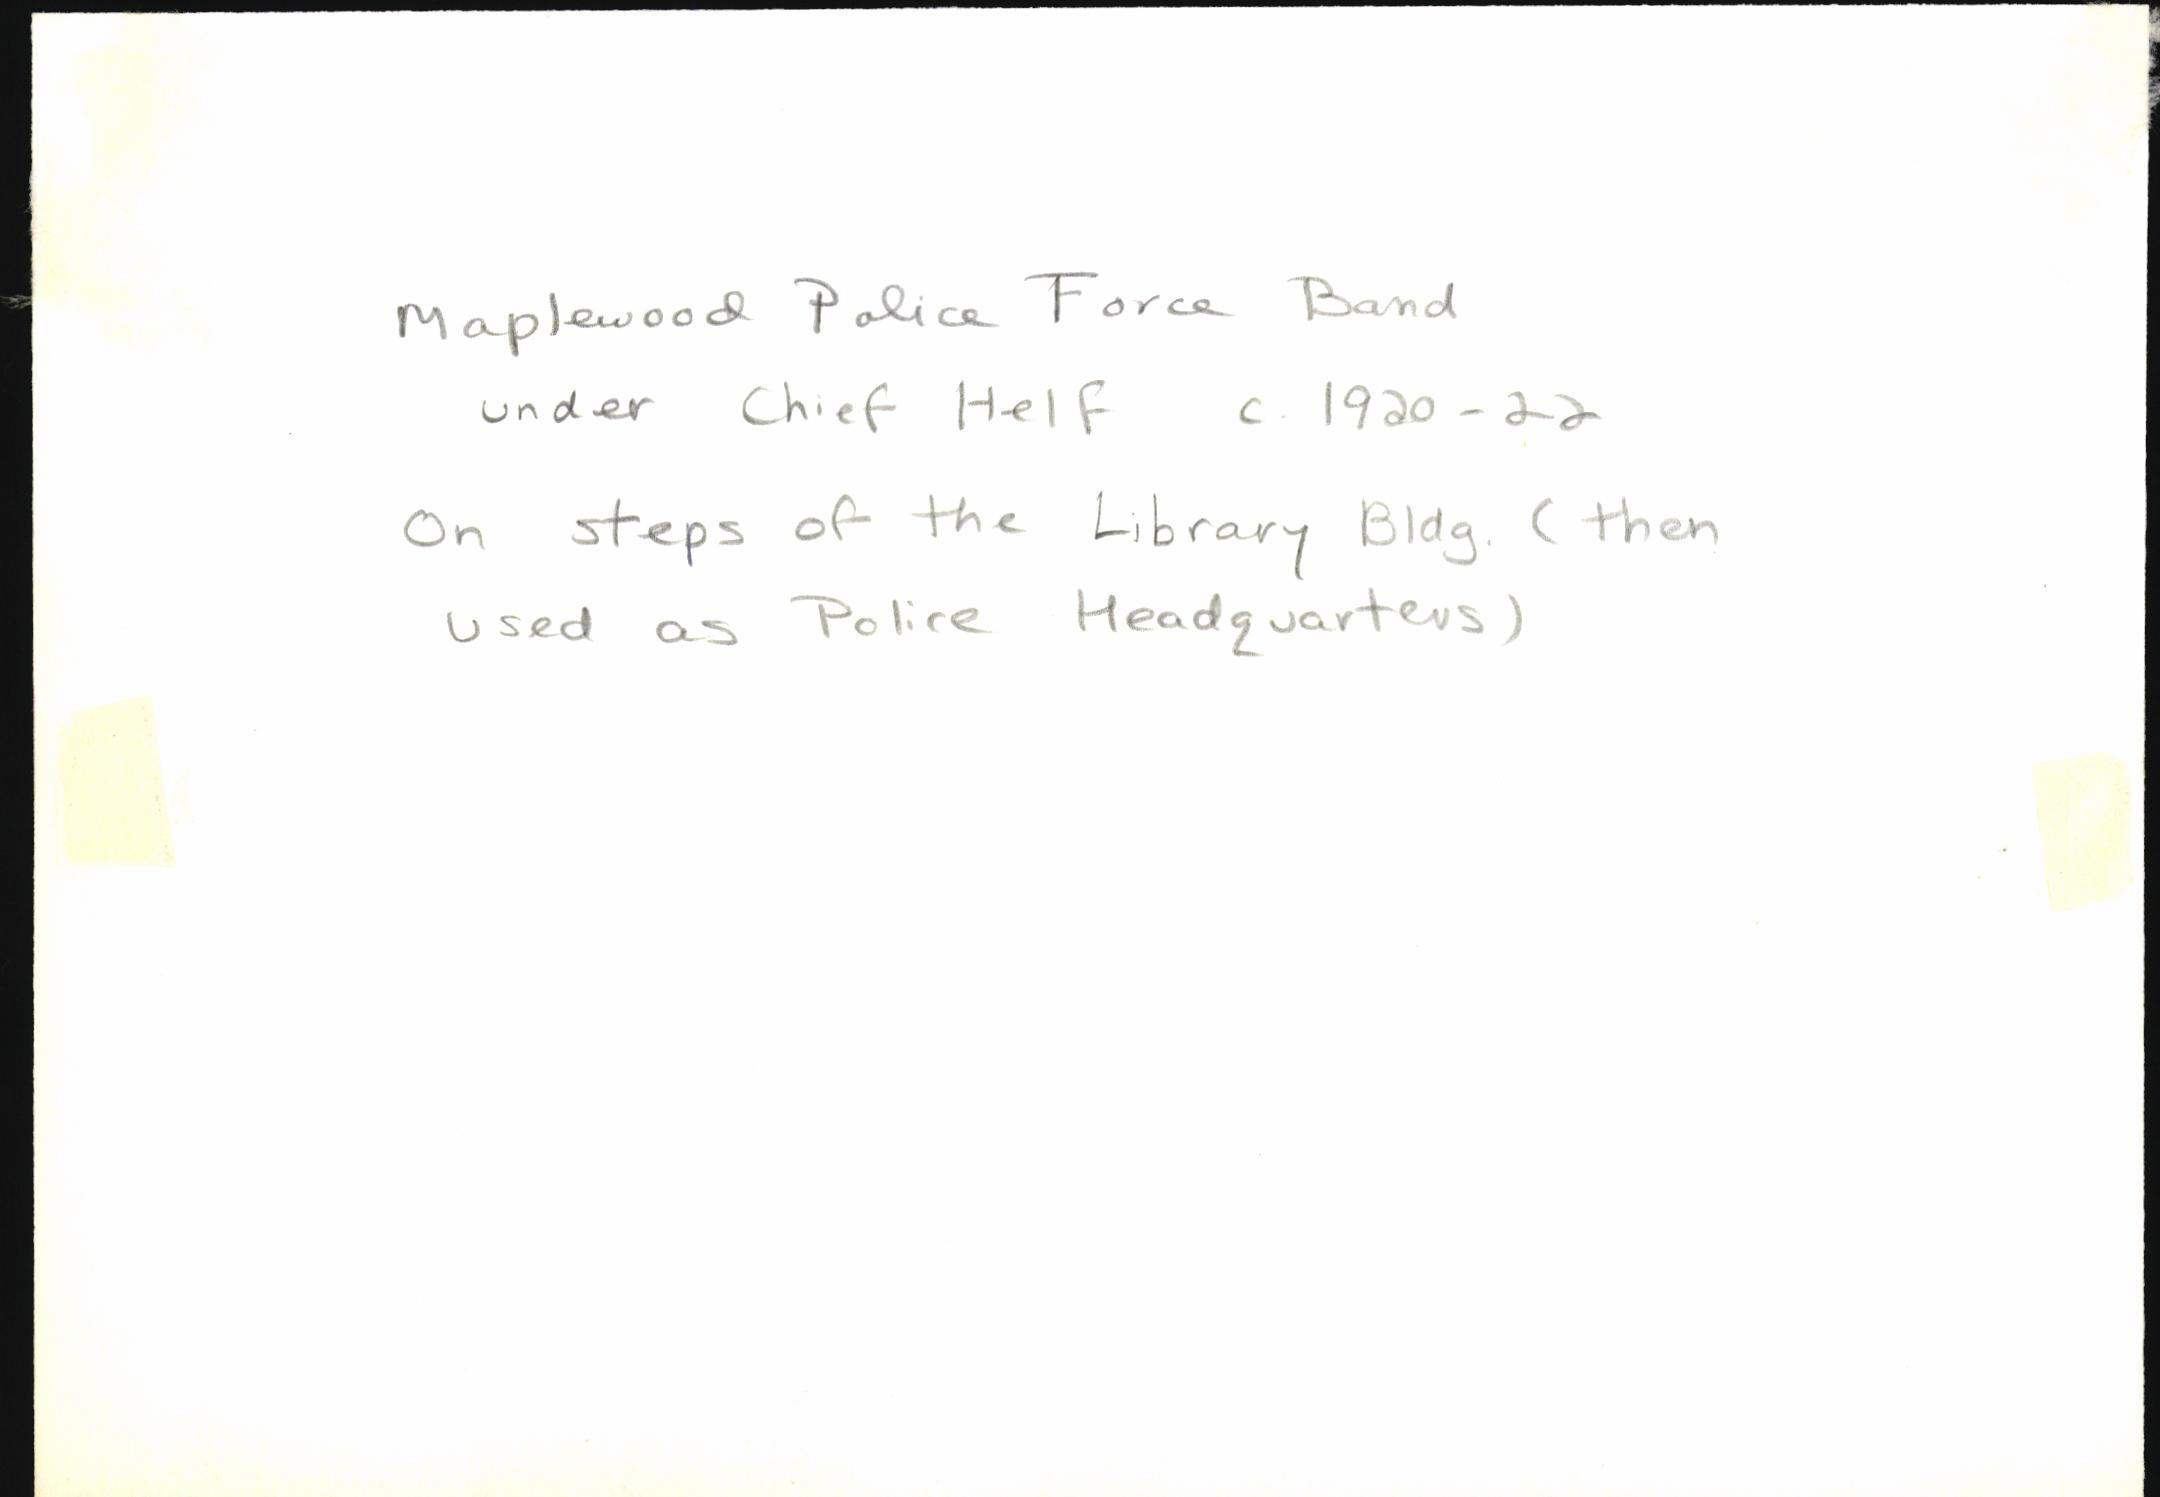 Maplewood Police Force Band
under Chief Helf c. 1920-22
On steps of the Library Bldg. (then
used as Police Headquarters)